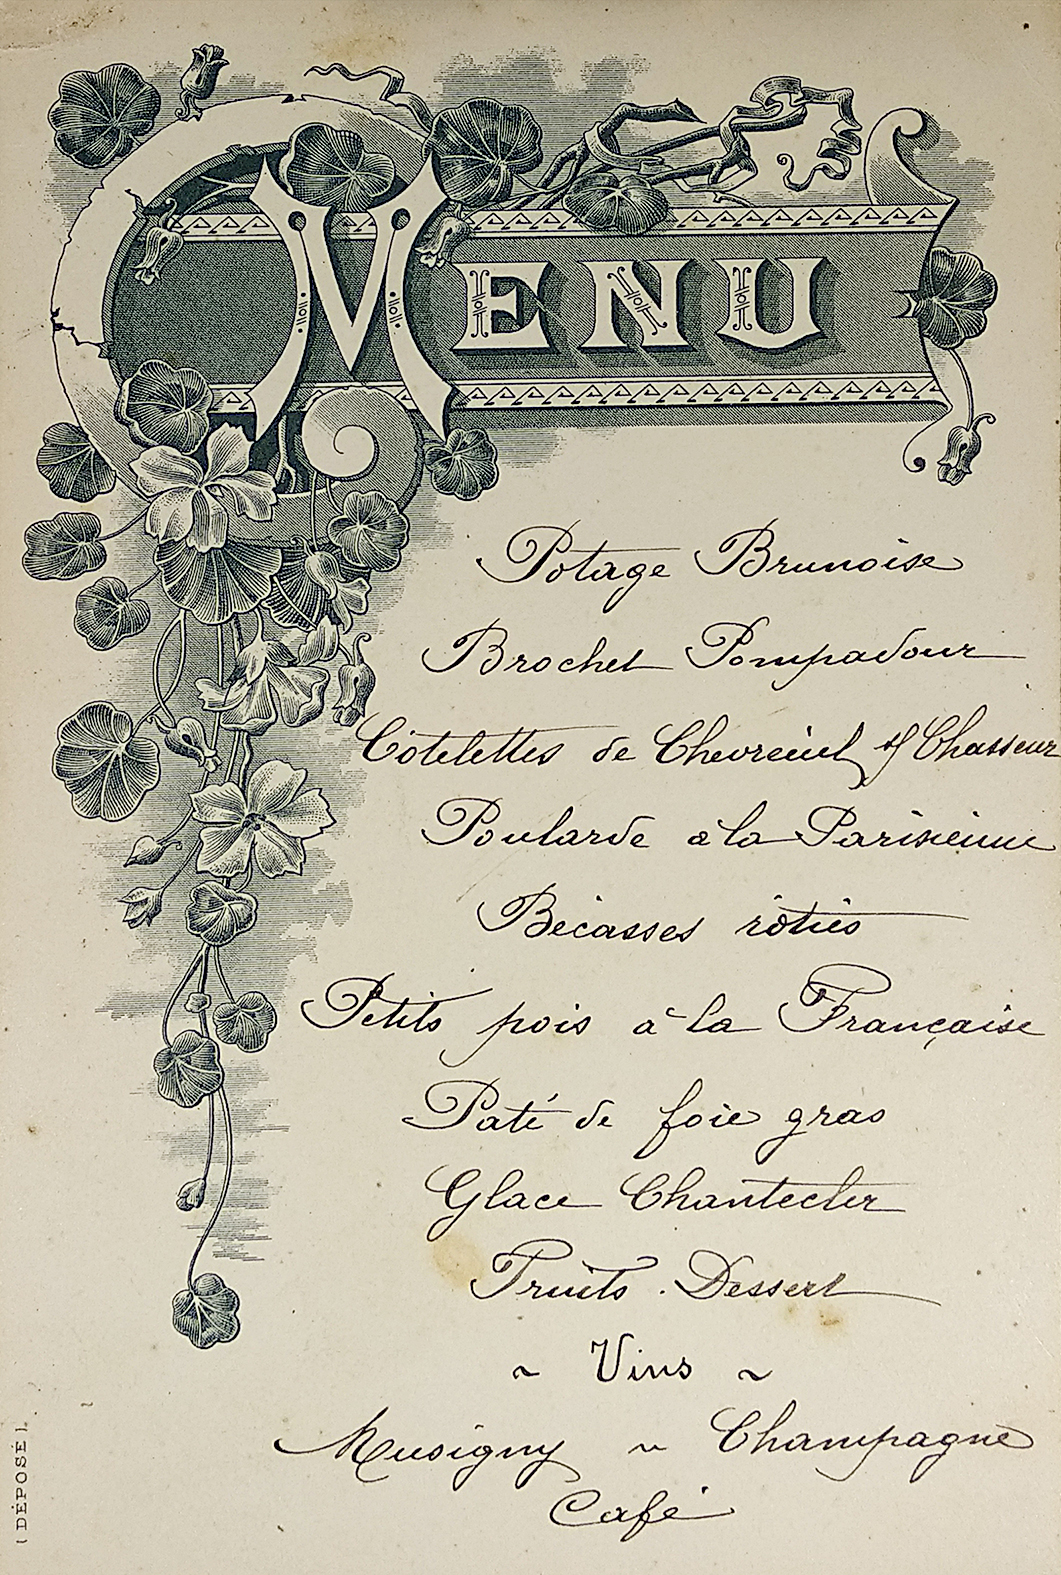 MENU
Potage Brunoise
Brochet Pompadour
Côtelettes de Chevreuil s/ Chasseur
Poularde à la Parisienne
Bécasses rôties
Petits pois à la Française
Paté de foie gras
Glace Chantecler
Fruits . Dessert
~ Vins ~
Musigny ~ Champagne
Café
( DÉPOSÉ )